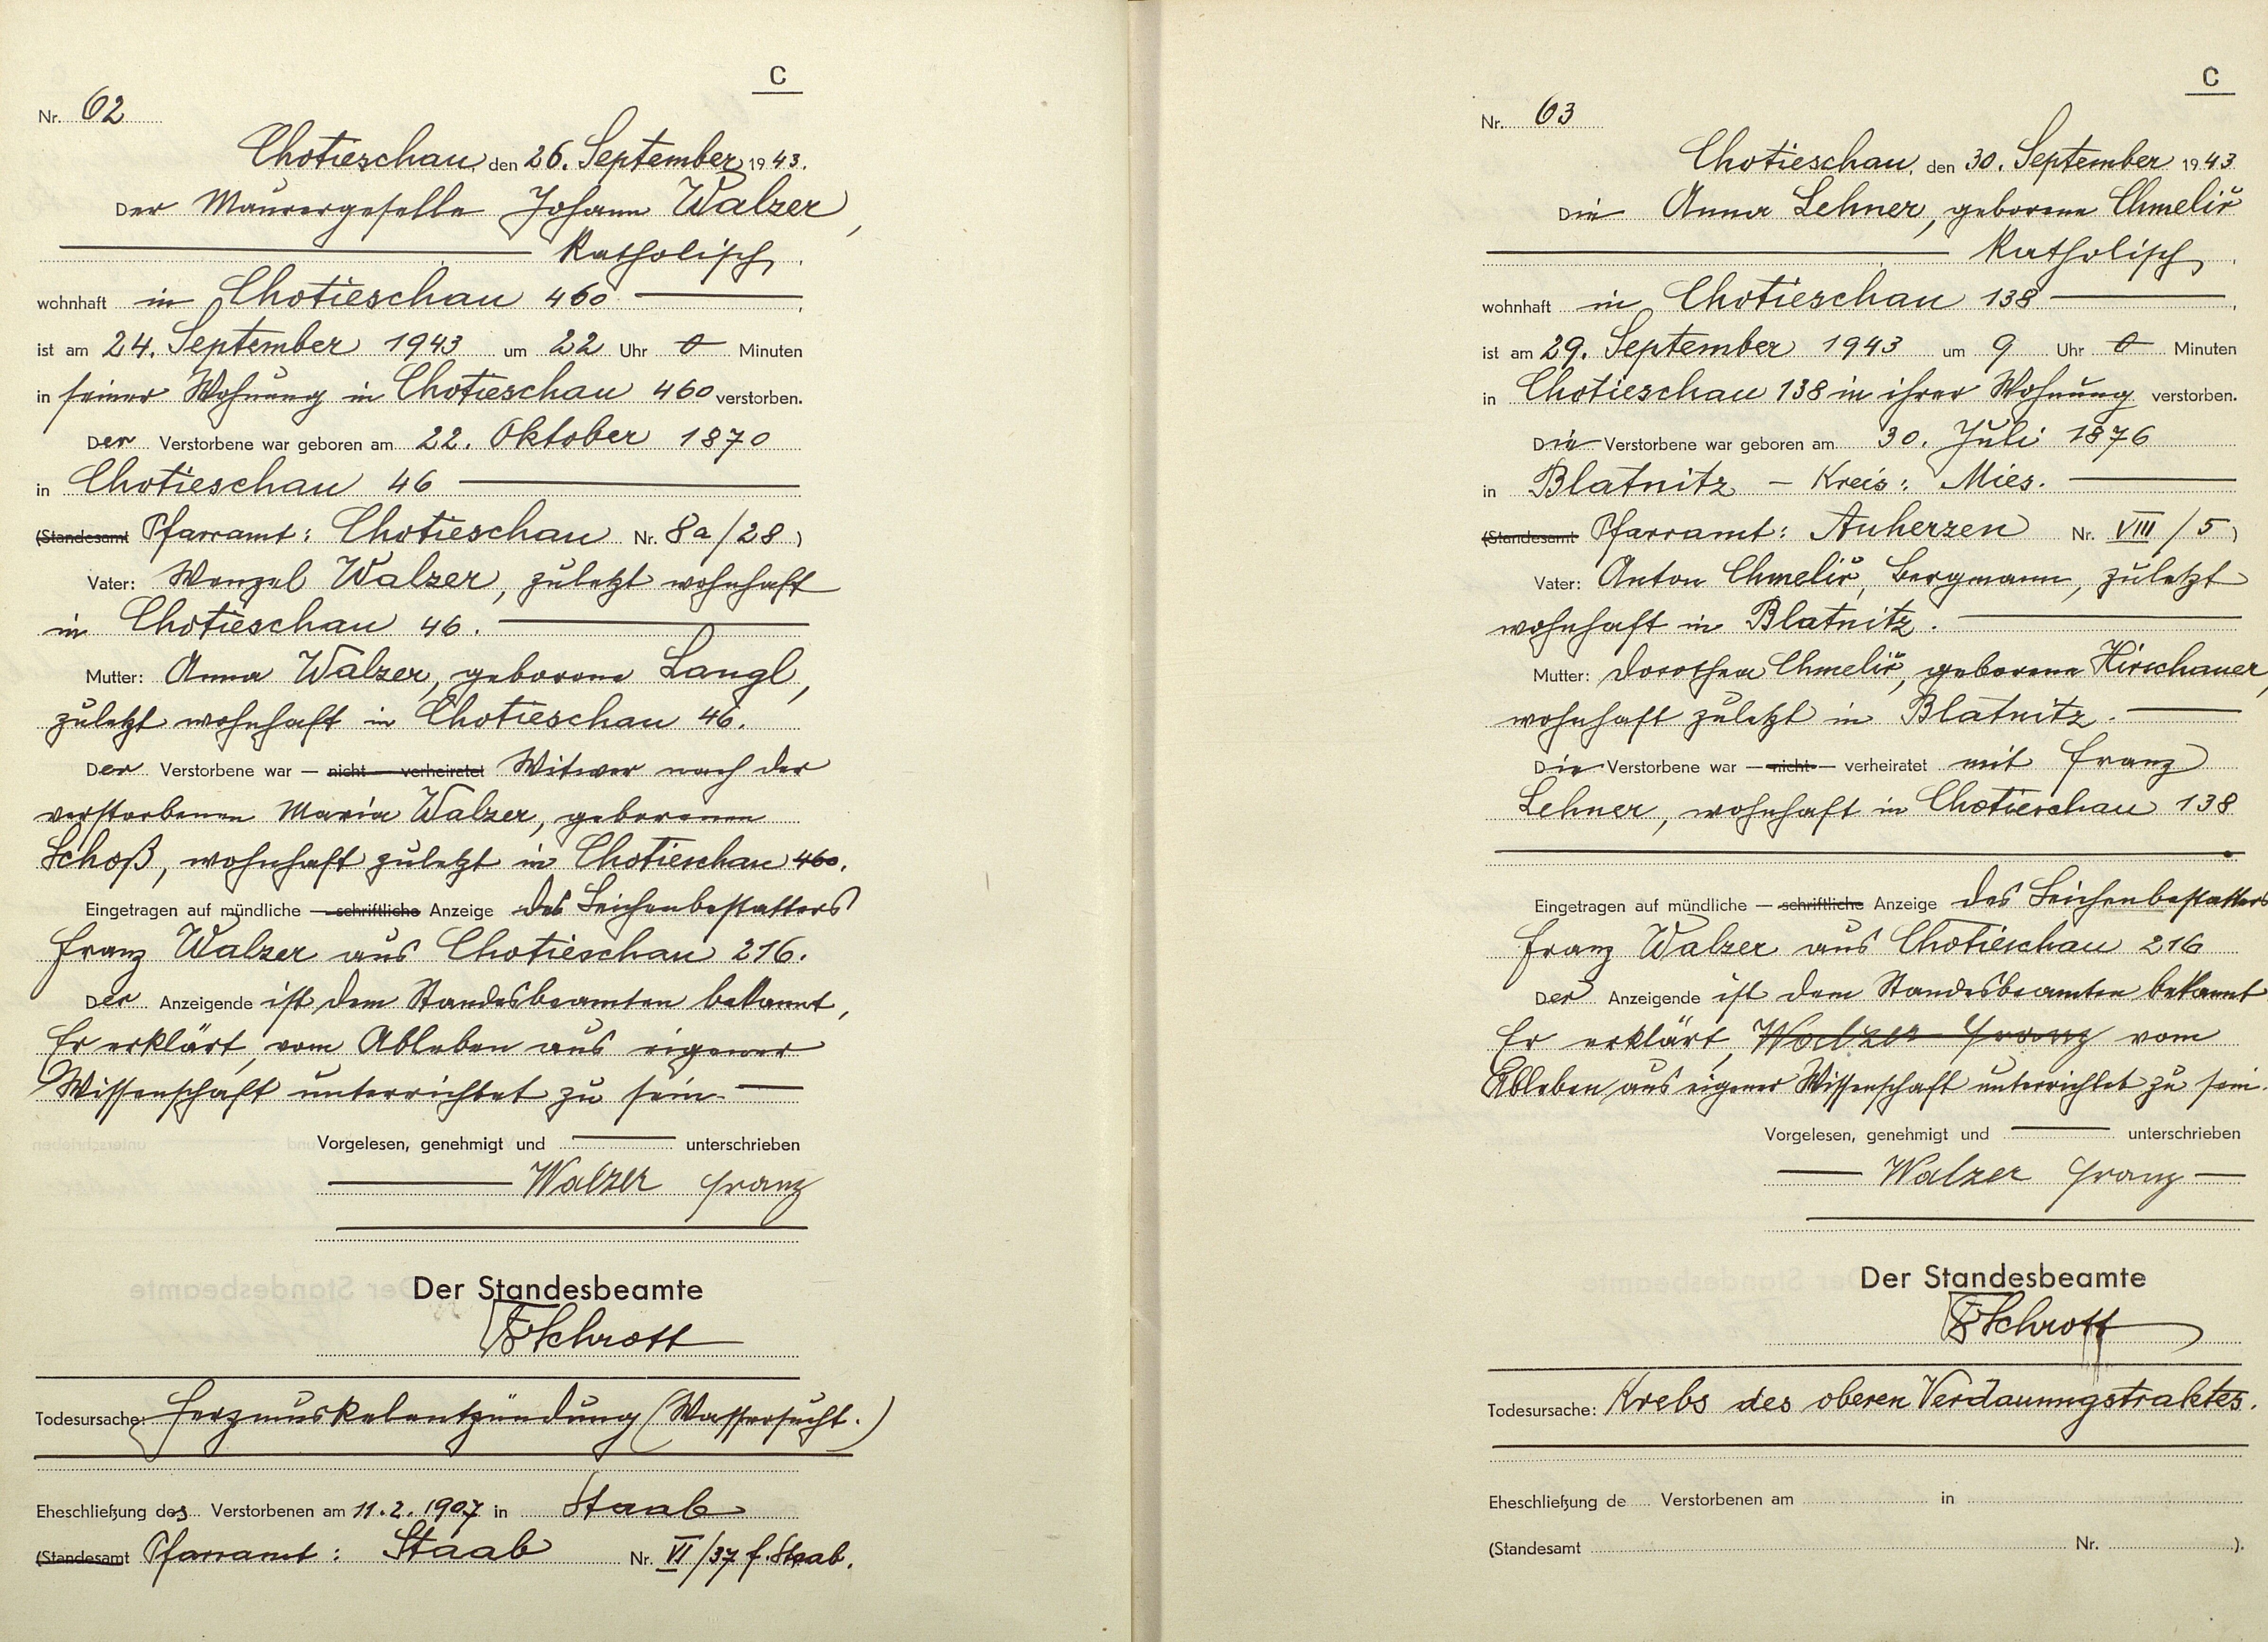 C
Nr. 62
Chotieschau, den 26. September 1943.
Der Maurergeselle Johann Walzer,
katholisch,
wohnhaft in Chotieschau 460
ist am 24. September 1943 um 22 Uhr 0 Minuten
in seiner Wohnung in Chotieschau 460 verstorben.
Der Verstorbene war geboren am 22. Oktober 1870
in Chotieschau 46
(Standesamt Pfarramt: Chotieschau Nr. 8a/28)
Vater: Wenzel Walzer, zuletzt wohnhaft
in Chotieschau 46.
Mutter: Anna Walzer, geborene Langl,
zuletzt wohnhaft in Chotieschau 46.
Der Verstorbene war — nicht — verheiratet Witwer nach der
verstorbenen Maria Walzer, geborenen
Schoß, wohnhaft zuletzt in Chotieschau 460.
Eingetragen auf mündliche — schriftliche Anzeige des Leichenbestatters
Franz Walzer aus Chotieschau 216.
Der Anzeigende ist dem Standesbeamten bekannt,
Er erklärt, vom Ableben aus eigener
Wissenschaft unterrichtet zu sein.
Vorgelesen, genehmigt und unterschrieben
Walzer Franz
Der Standesbeamte
Schrott
Todesursache: Herzmuskelentzündung (Wassersucht.)
Eheschließung des Verstorbenen am 11.2.1907 in Staab
(Standesamt Pfarramt: Staab Nr. VI/37 f. Staab.
C
Nr. 63
Chotieschau, den 30. September 1943
Die Anna Lehner, geborene Chmelíř
katholisch,
wohnhaft in Chotieschau 138
ist am 29. September 1943 um 9 Uhr 0 Minuten
in Chotieschau 138 in ihrer Wohnung verstorben.
Die Verstorbene war geboren am 30. Juli 1876
in Blatnitz – Kreis: Mies.
(Standesamt Pfarramt: Auherzen Nr. VIII/5)
Vater: Anton Chmelíř, Bergmann, zuletzt
wohnhaft in Blatnitz.
Mutter: Dorothea Chmelíř, geborene Hirschauer,
wohnhaft zuletzt in Blatnitz.
Die Verstorbene war — nicht — verheiratet mit Franz
Lehner, wohnhaft in Chotieschau 138
Eingetragen auf mündliche — schriftliche Anzeige des Leichenbestatters
Franz Walzer aus Chotieschau 216
Der Anzeigende ist dem Standesbeamten bekannt
Er erklärt, Walzer Franz vom
Ableben aus eigener Wissenschaft unterrichtet zu sein.
Vorgelesen, genehmigt und unterschrieben
Walzer Franz
Der Standesbeamte
Schrott
Todesursache: Krebs des oberen Verdauungstraktes.
Eheschließung de Verstorbenen am in
(Standesamt Nr. ).